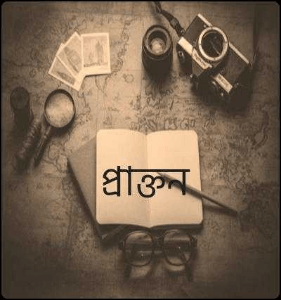 প্রাক্তন